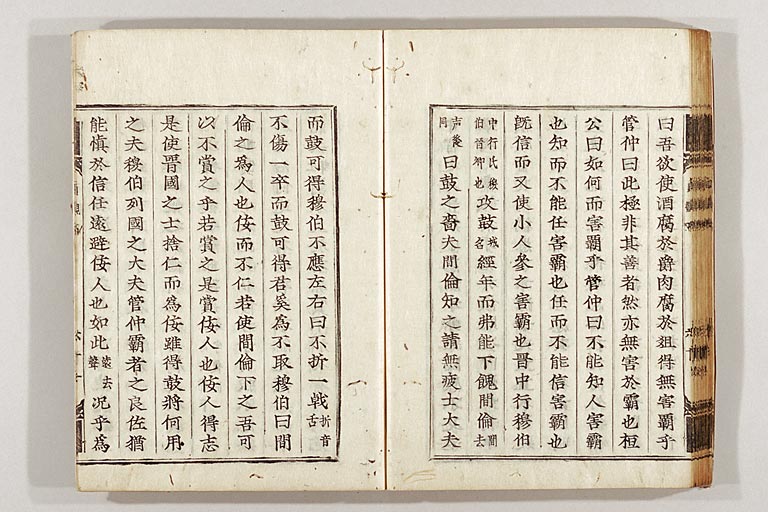 曰吾欲使酒腐於爵肉腐於俎得無害霸乎
管仲曰此極非其善者然亦無害於霸也桓
公曰如何而害霸乎管仲曰不能知人害霸
也知而不能任害霸也任而不能信害霸也
旣信而又使小人參之害霸也晋中行穆伯
中行氏穆伯晋卿也攻鼓城名經年而弗能下餽間倫間去
声後同曰鼓之嗇夫間倫知之請無疲士大夫
而鼓可得穆伯不應左右曰不折一戟折音舌
不傷一卒而鼓可得君奚為不取穆伯曰間
倫之為人也佞而不仁若使間倫下之吾可
以不賞之乎若賞之是賞佞人也佞人得志
是使晋國之士捨仁而為佞雖得鼓將何用
之夫穆伯列國之大夫管仲霸者之良佐猶
能慎於信任遠避佞人也如此遠去聲况乎為